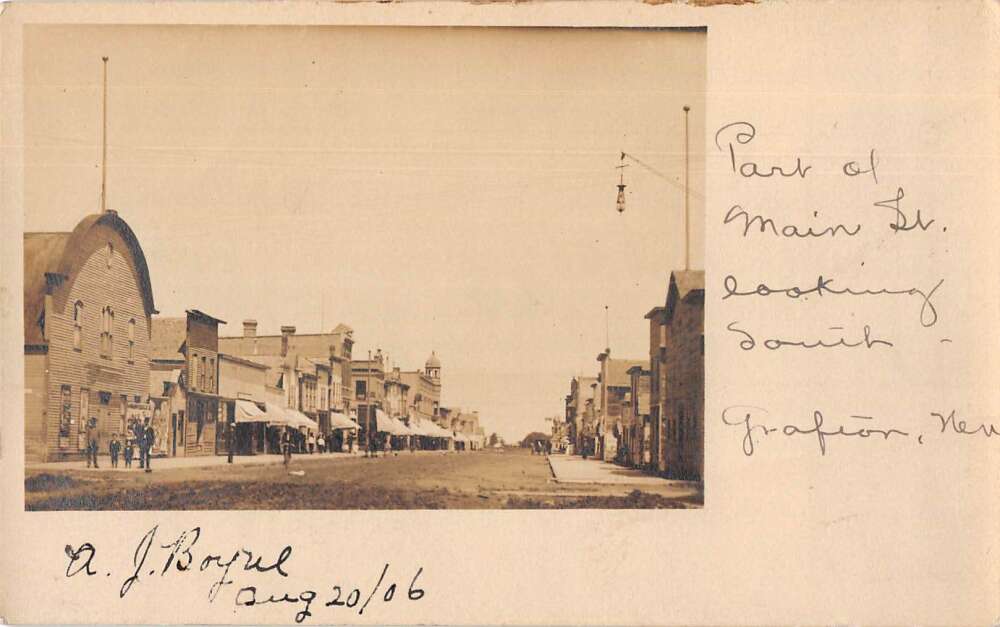 Part of
Main St.
looking
South -
Grafton,
A. J. Boyul
Aug 20/06